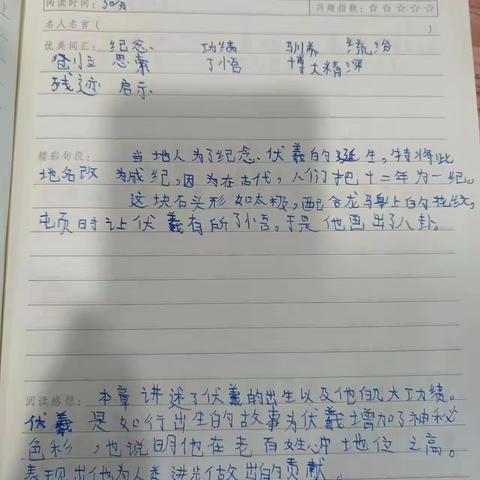 阅读时间：30分 兴趣指数：☆☆☆☆☆
名人名言（ ）
优美词汇：纪念 功绩 驯养 统治
创立 思索 了悟 博大精深
残迹 启示
精彩句段：当地人为了纪念伏羲的诞生，特将此
地名改为成纪，因为在古代，人们把十二年为一纪。
这块石头形如太极，配合龙马身上的花纹，
屯页时让伏羲有所了悟，于是他画出了八卦。
阅读感想：本章讲述了伏羲的出生以及他的几大功绩。
伏羲是如何出生的故事为伏羲增加了神秘
色彩，也说明他在老百姓心中地位之高。
表现出他为人类进步做出的贡献。